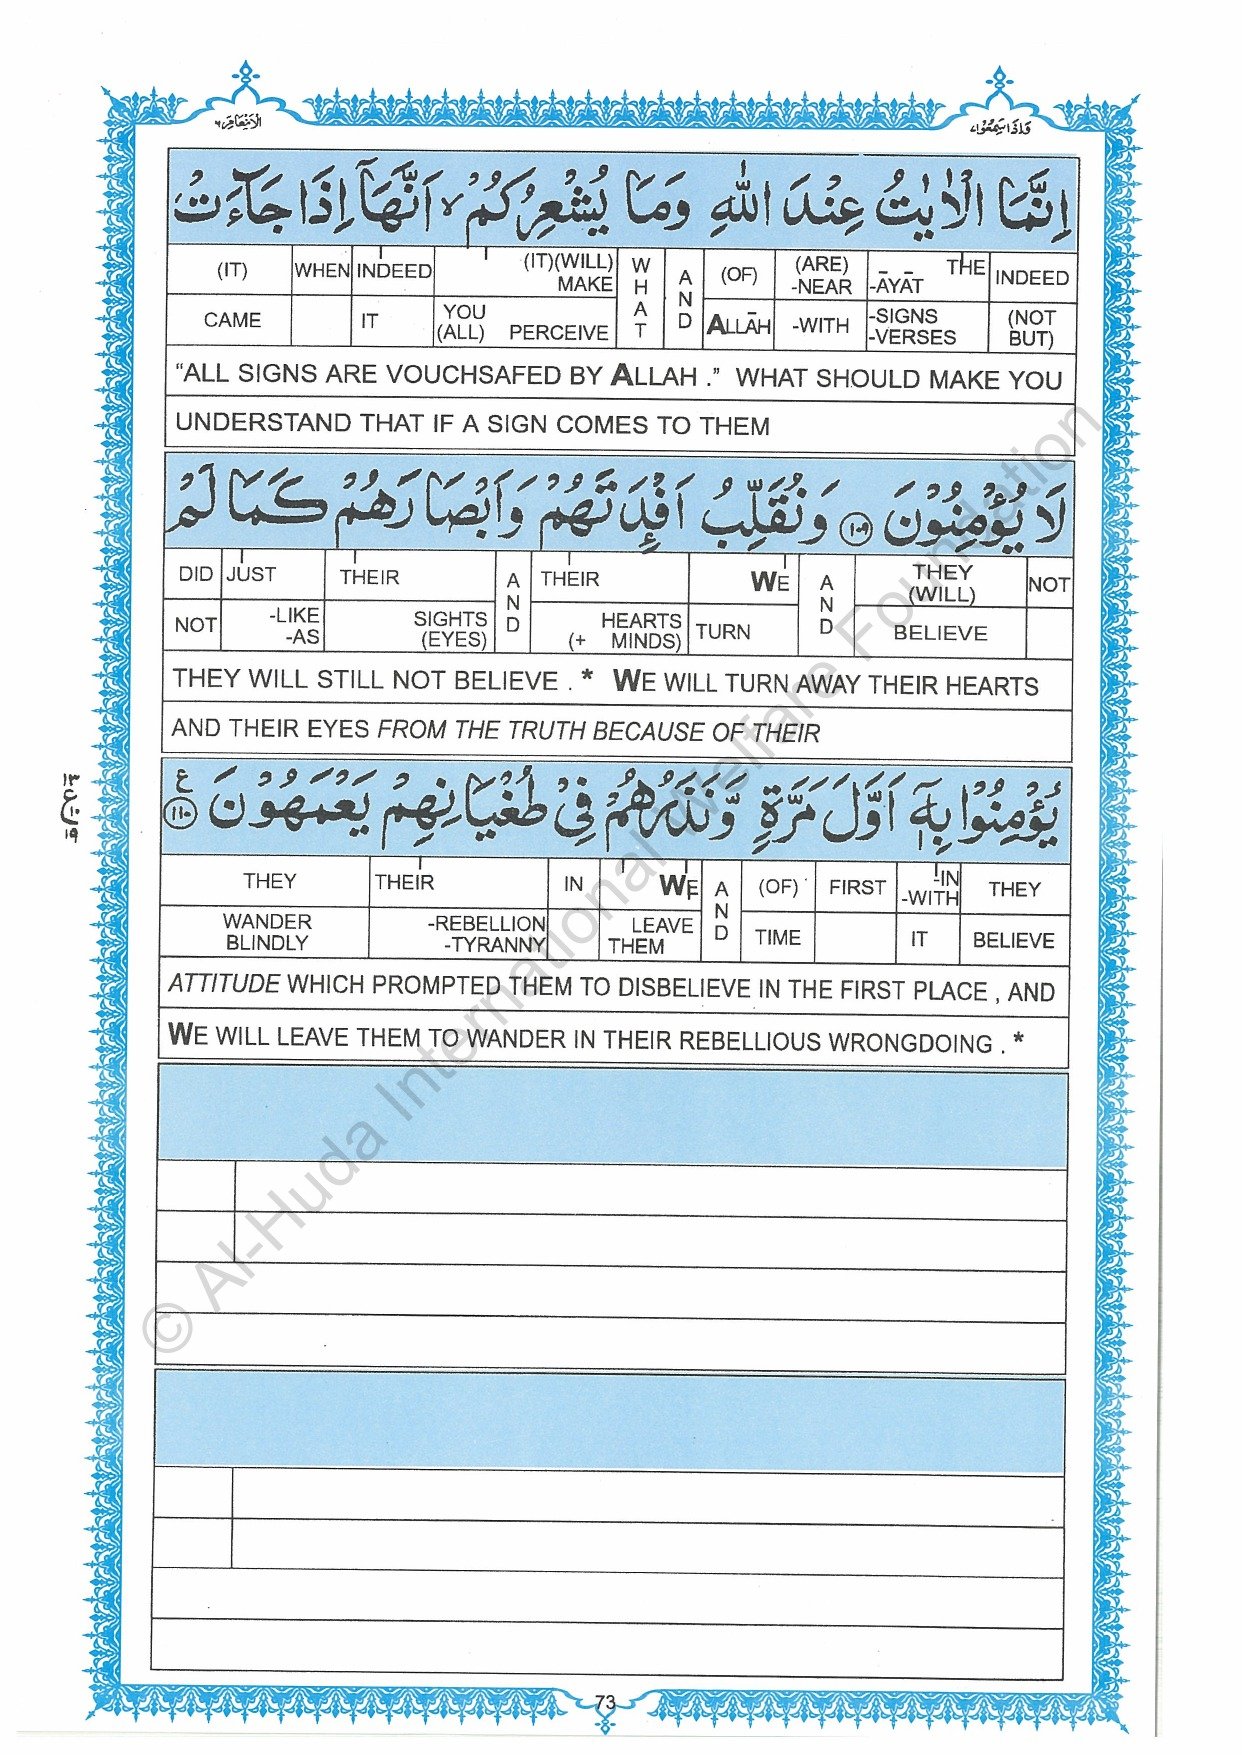 الانعام ٦
واذا سمعوا ٧
اِنَّمَا الْاٰيٰتُ عِنْدَ اللّٰهِ وَمَا يُشْعِرُكُمْ ۙ اَنَّهَآ اِذَا جَآءَتْ
(IT) WHEN INDEED (IT)(WILL) MAKE WHAT AND (OF) (ARE) -NEAR THE -ĀYĀT INDEED
CAME IT YOU (ALL) PERCEIVE ALLĀH -WITH -SIGNS -VERSES (NOT BUT)
“ALL SIGNS ARE VOUCHSAFED BY ALLAH .” WHAT SHOULD MAKE YOU
UNDERSTAND THAT IF A SIGN COMES TO THEM
لَا يُؤْمِنُوْنَ ۝١٠٩ وَنُقَلِّبُ اَفْـِٕدَتَهُمْ وَاَبْصَارَهُمْ كَمَا لَمْ
DID JUST THEIR AND THEIR WE AND THEY (WILL) NOT
NOT -LIKE -AS SIGHTS (EYES) HEARTS (+ MINDS) TURN BELIEVE
THEY WILL STILL NOT BELIEVE . * WE WILL TURN AWAY THEIR HEARTS
AND THEIR EYES FROM THE TRUTH BECAUSE OF THEIR
يُؤْمِنُوْا بِهٖٓ اَوَّلَ مَرَّةٍ وَّنَذَرُهُمْ فِيْ طُغْيَانِهِمْ يَعْمَهُوْنَ ۝١١٠ ع
THEY THEIR IN WE AND (OF) FIRST -IN -WITH THEY
WANDER BLINDLY -REBELLION -TYRANNY LEAVE THEM TIME IT BELIEVE
ATTITUDE WHICH PROMPTED THEM TO DISBELIEVE IN THE FIRST PLACE , AND
WE WILL LEAVE THEM TO WANDER IN THEIR REBELLIOUS WRONGDOING . *
73
© Al-Huda International Welfare Foundation